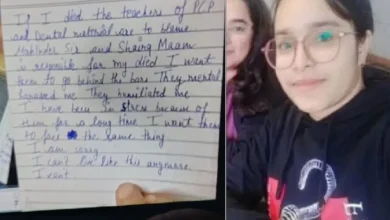 If I died the teachers of PCP
and Dental material are to blame
Mahinder Sir and Shairg Maam
is responsible for my died I want
them to go behind the bars They mental
harassed me They humiliated me
I have been in stress because of
them for a long time I want them
to face the same thing
I am sorry
I can't live like this anymore.
I cant.
2